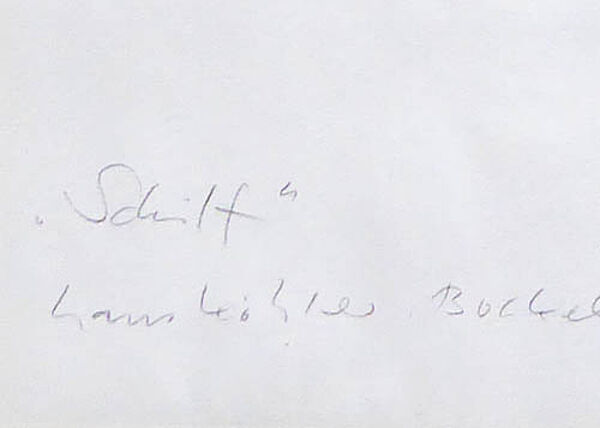 „Schilf“
Hans Köhler Bockel